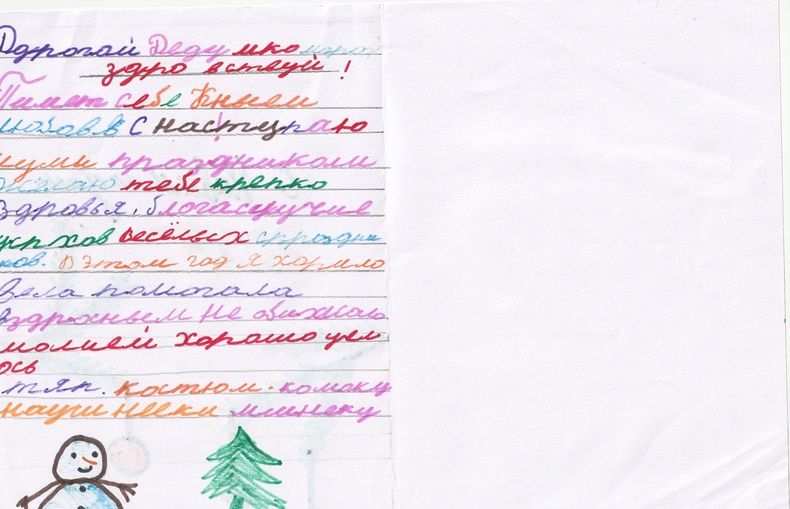 Ддрогай Дедушко мороз
здро вствуй !
Пишет себе Книеи
любовь С наступаю
щуми праздником
желаю тебе крепко
здровья, благасучие
успхов весёлых спраздни
ков. В этом год я хормло
вела помогала
вздросным не обижаю
молией хорошо учи
ось
костюм. комаку
наушнеки мишеку